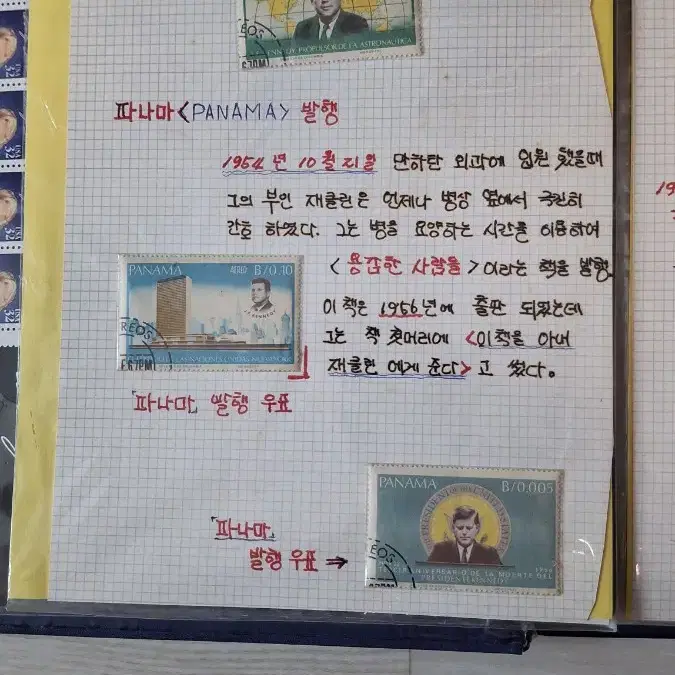 KENNEDY, PROPULSOR DE LA ASTRONAUTICA
파나마 <PANAMA> 발행
1954년 10월 21일 만하탄 외과에 입원 했을때
그의 부인 재클린은 언제나 병상 옆에서 극진히
간호 하였다. 그는 병을 요양하는 시간을 이용하여
<용감한 사람들>이라는 책을 발행
이 책은 1956년에 출판 되었는데
그는 책 첫머리에 <이책을 아내
재클린 에게 준다>고 썼다.
PANAMA AEREO B/0.10
J.F. KENNEDY
「파나마」 발행 우표
PANAMA B/0.005
「파나마」
발행 우표 →
ANIVERSARIO DE LA MUERTE DEL
PRESIDENTE KENNEDY
32